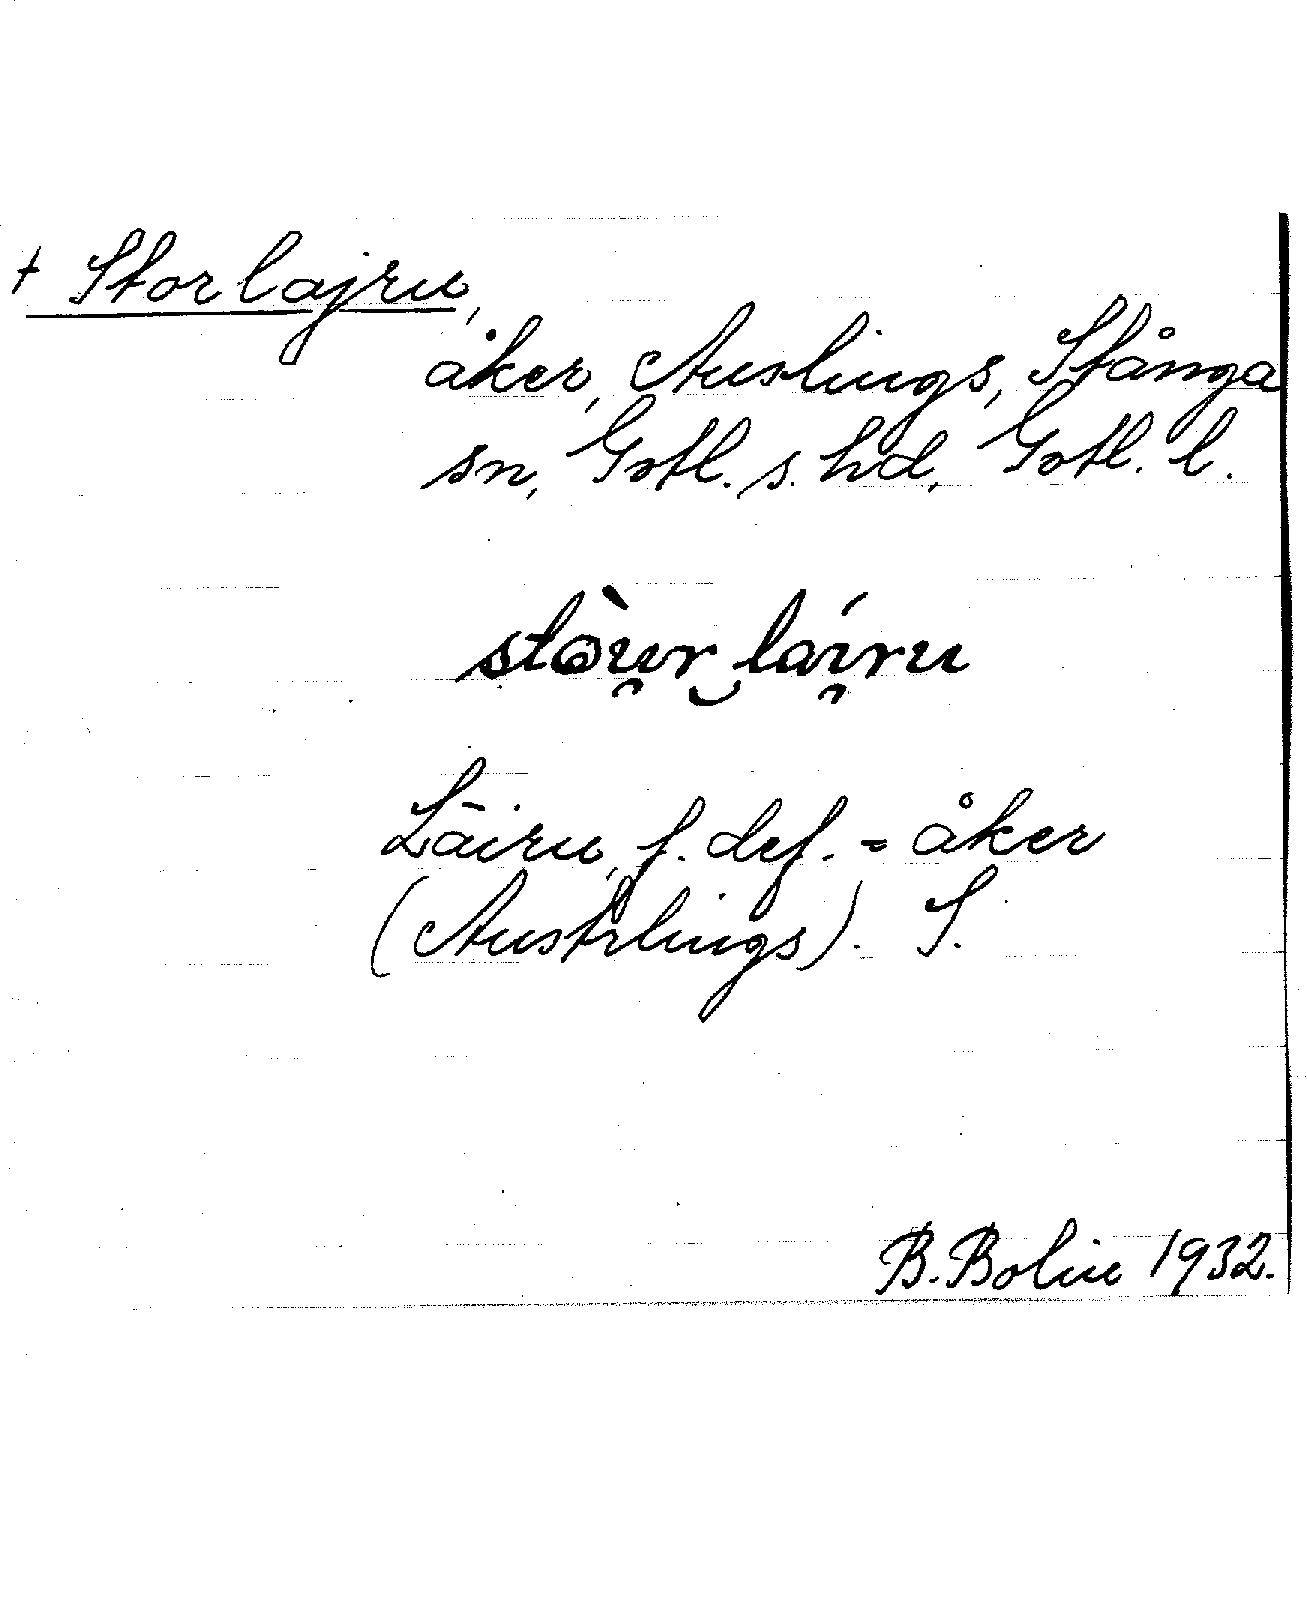 + Storlajru,
åker, Austlings, Stånga
sn, Gotl. s. hd, Gotl. l.
stòu̯r‿laí̯ru
Lāiru, f. def. = åker
(Austrlings). S.
B. Bolin 1932.